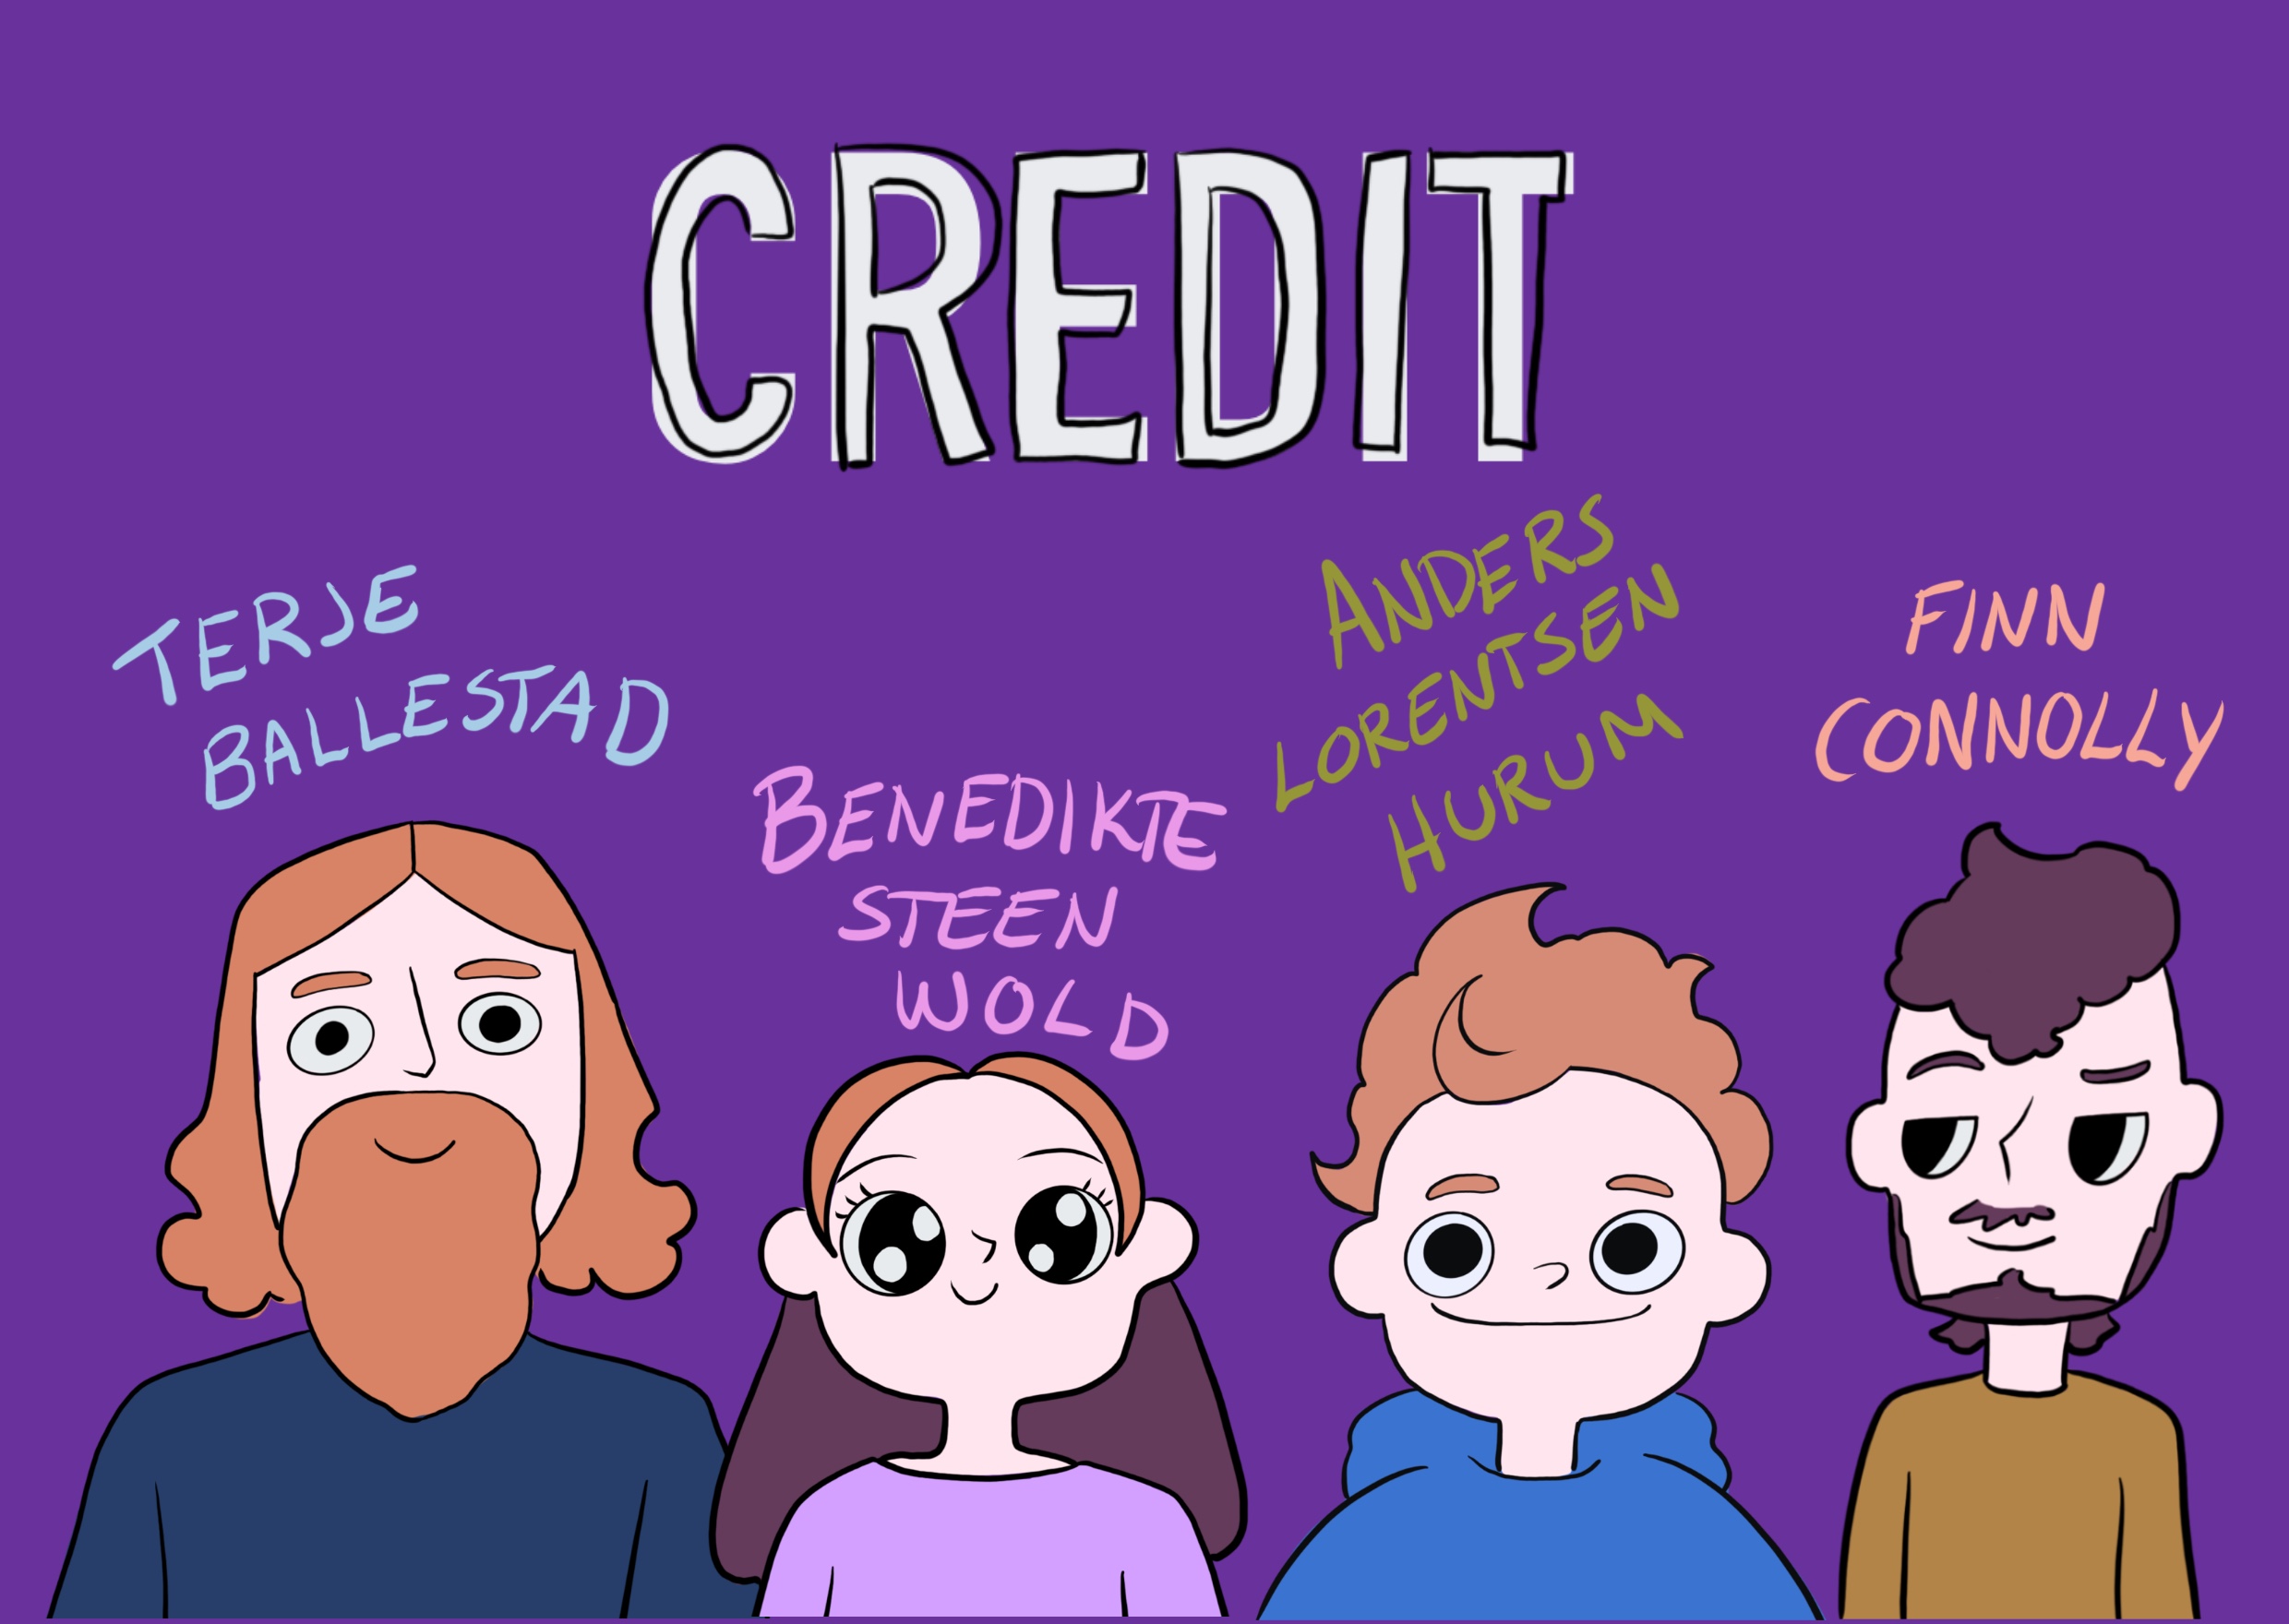 CREDIT
TERJE
BALLESTAD
BENEDIKTE
STEEN
WOLD
ANDERS
LORENTSEN
HURUM
FINN
CONNOLLY